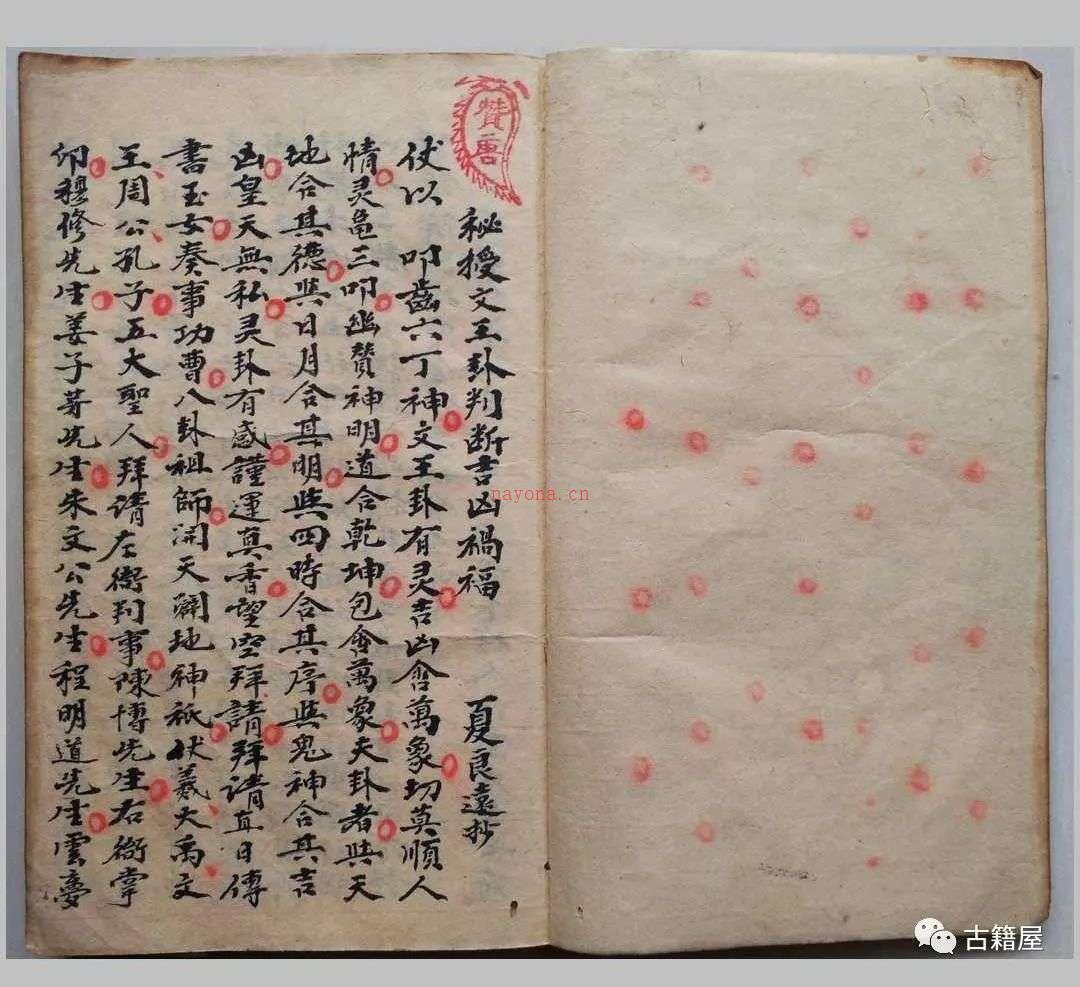 贊唐
秘授文王卦判断吉凶禍福 夏良遠抄
伏以 叩齒六丁神文王卦有灵吉凶含萬象切莫順人
情灵龟三叩幽贊神明道合乾坤包含萬象夫卦者與天
地合其德與日月合其明與四時合其序與鬼神合其吉
凶皇天無私灵卦有感謹運真香望空拜請拜請直日傳
書玉女奏事功曹八卦祖師開天闢地神祇伏羲大禹文
王周公孔子五大聖人拜请左衙判事陳摶先生右衙掌
卯穆修先生姜子芽先生朱文公先生程明道先生雲夢
nayona.cn
古籍屋